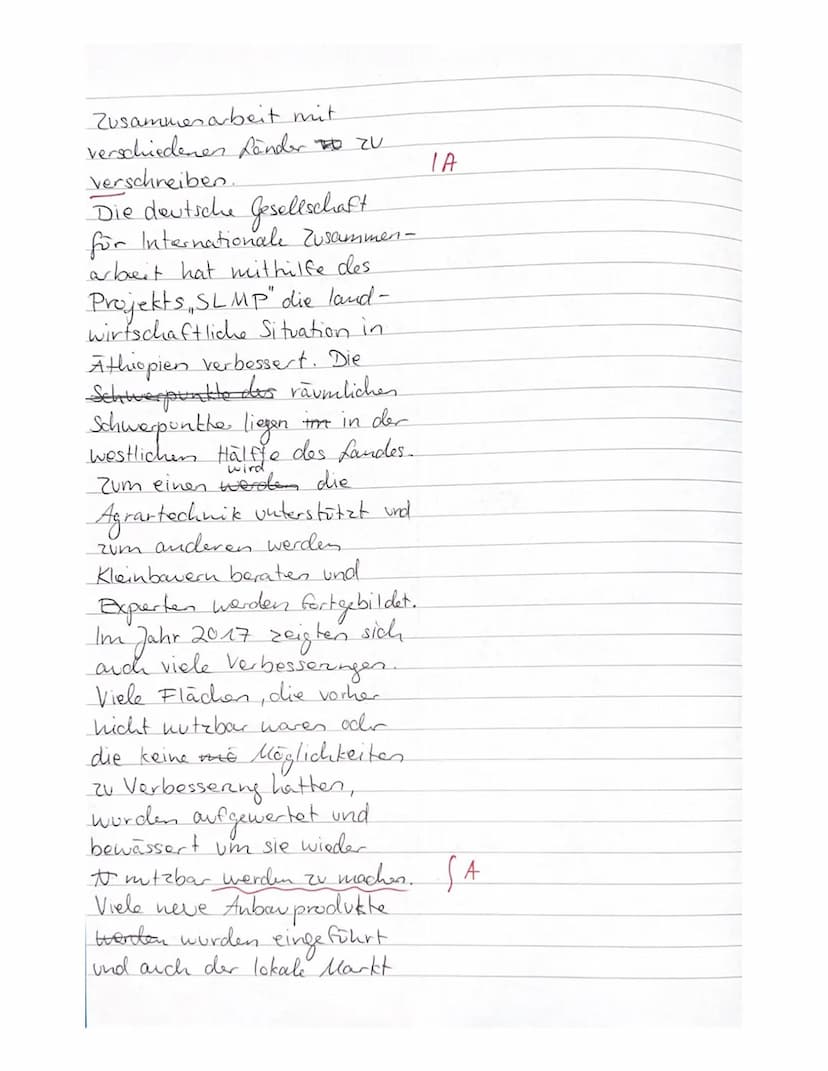 Zusammenarbeit mit
verschiedenen Länder zu
verschreiben.
IA
Die deutsche Gesellschaft
für Internationale Zusammen-
arbeit hat mithilfe des
Projekts „SLMP" die land-
wirtschaftliche Situation in
Äthiopien verbessert. Die
Schwerpunkte des räumlichen
Schwerpunkte liegen im in der
westlichen Hälfte des Landes.
wird
Zum einen werden die
Agrartechnik unterstützt und
zum anderen werden
Kleinbauern beraten und
Experten werden fortgebildet.
Im Jahr 2017 zeigten sich
auch viele Verbesserungen.
Viele Flächen, die vorher
nicht nutzbar waren oder
die keine mö Möglichkeiten
zu Verbesserung hatten,
wurden aufgewertet und
bewässert um sie wieder
nutzbar werden zu machen. ʃ A
Viele neue Anbauprodukte
werden wurden eingeführt
und auch der lokale Markt